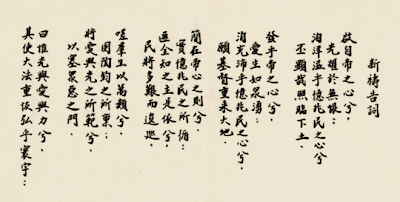 新禱告詞
啟自帝之心兮、
光耀於無垠：
洵洋溢乎億兆民之心兮
丕顯哉照臨下土、
發乎帝之心兮、
愛生如泉湧：
洵充沛乎億兆民之心兮、
願基督重來大地、
簡在帝心之則兮、
實億兆民之所循：
匪全知之主是依兮、
民將多艱而逡巡、
嗟羣生以萬類兮、
因陶鈞之所熏：
將愛與光之所範兮、
以塞眾惡之門、
曰惟光與愛與力兮、
其使大法重恢弘乎寰宇：